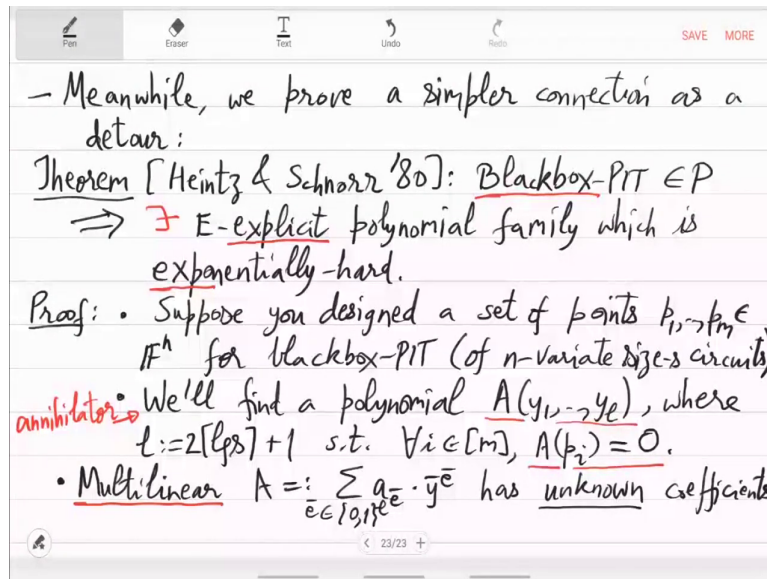 Pen Eraser Text Undo Redo SAVE MORE
– Meanwhile, we prove a simpler connection as a
detour:
Theorem [Heintz & Schnorr '80]: Blackbox-PIT ∈ P
⟹ ∃ E-explicit polynomial family which is
exponentially-hard.
Proof: • Suppose you designed a set of points p₁,..,pₘ ∈
𝔽ⁿ for blackbox-PIT (of n-variate size-s circuits)
annihilator→ • We'll find a polynomial A(y₁,..,yₗ), where
l := 2⌈lg s⌉+1 s.t. ∀i∈[m], A(pᵢ) = 0.
• Multilinear A =: ∑_{ē∈{0,1}^ℓ} a_ē · ȳ^ē has unknown coefficients
< 23/23 +